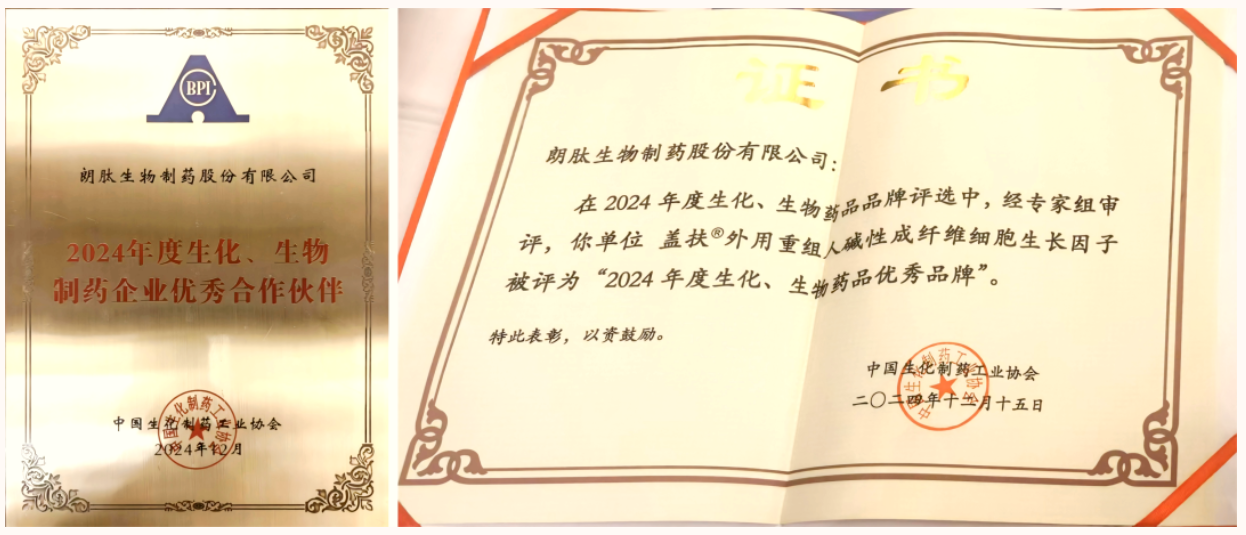 CBPI
朗肽生物制药股份有限公司
2024年度生化、生物
制药企业优秀合作伙伴
中国生化制药工业协会
2024年12月
中国生化制药工业协会
证书
朗肽生物制药股份有限公司：
在2024年度生化、生物药品品牌评选中，经专家组审
评，你单位 盖扶®外用重组人碱性成纤维细胞生长因子
被评为“2024年度生化、生物药品优秀品牌”。
特此表彰，以资鼓励。
中国生化制药工业协会
二〇二四年十二月十五日
中国生化制药工业协会